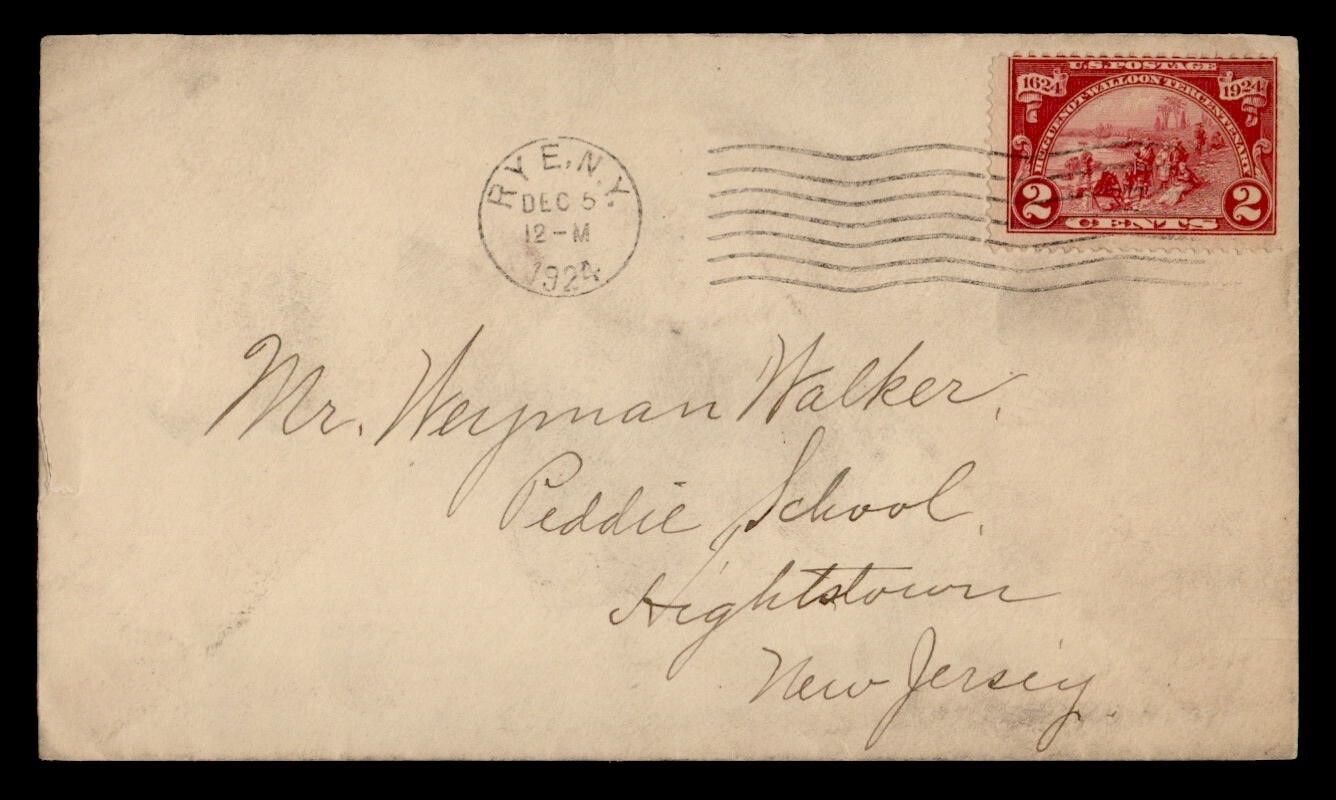 U.S. POSTAGE
1624 1924
HUGUENOT-WALLOON TERCENTENARY
2 2
CENTS
RYE, N.Y.
DEC 5
12-M
1924
Mr. Weyman Walker,
Peddie School,
Hightstown
New Jersey.